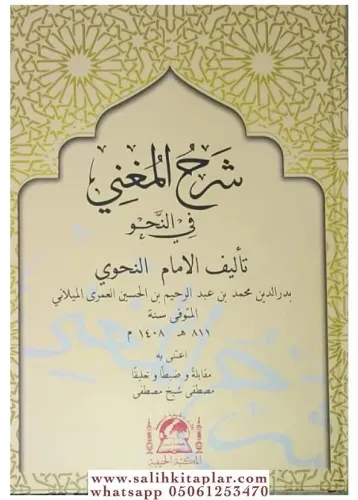 شَرْحُ المُغْنِي
فِي النَّحْوِ
تأليف الامام النحوي
بدرالدين محمد بن عبد الرحيم بن الحسين العمرى الميلاني
المتوفى سنة
٨١١ هـ ١٤٠٨ م
اعتنى به
مقابلة و ضبطا و تعليقا
مصطفى شيخ مصطفى
المكتبة الحنيفية
www.salihkitaplar.com
whatsapp 05061253470